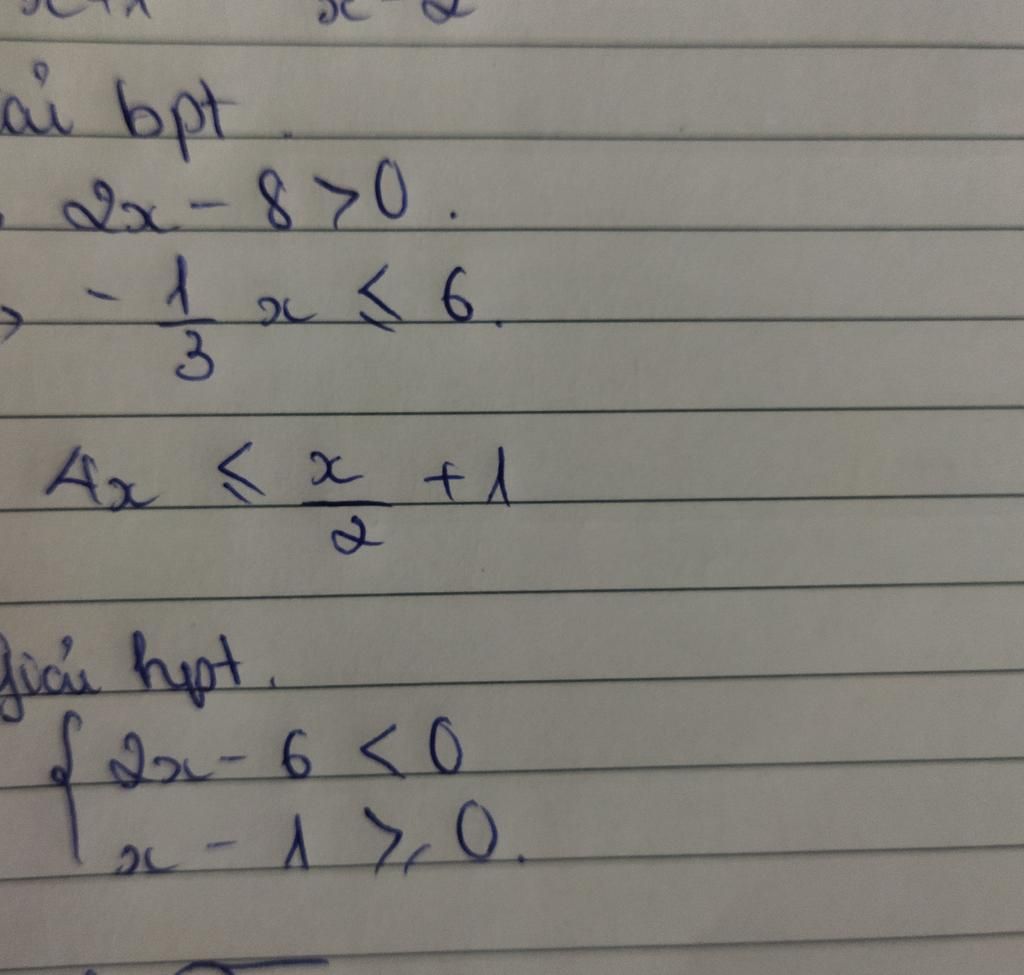 ải bpt.
2x - 8 > 0.
- 1/3 x ≤ 6.
4x ≤ x/2 + 1
giải hpt.
{ 2x - 6 < 0
x - 1 ≥ 0.